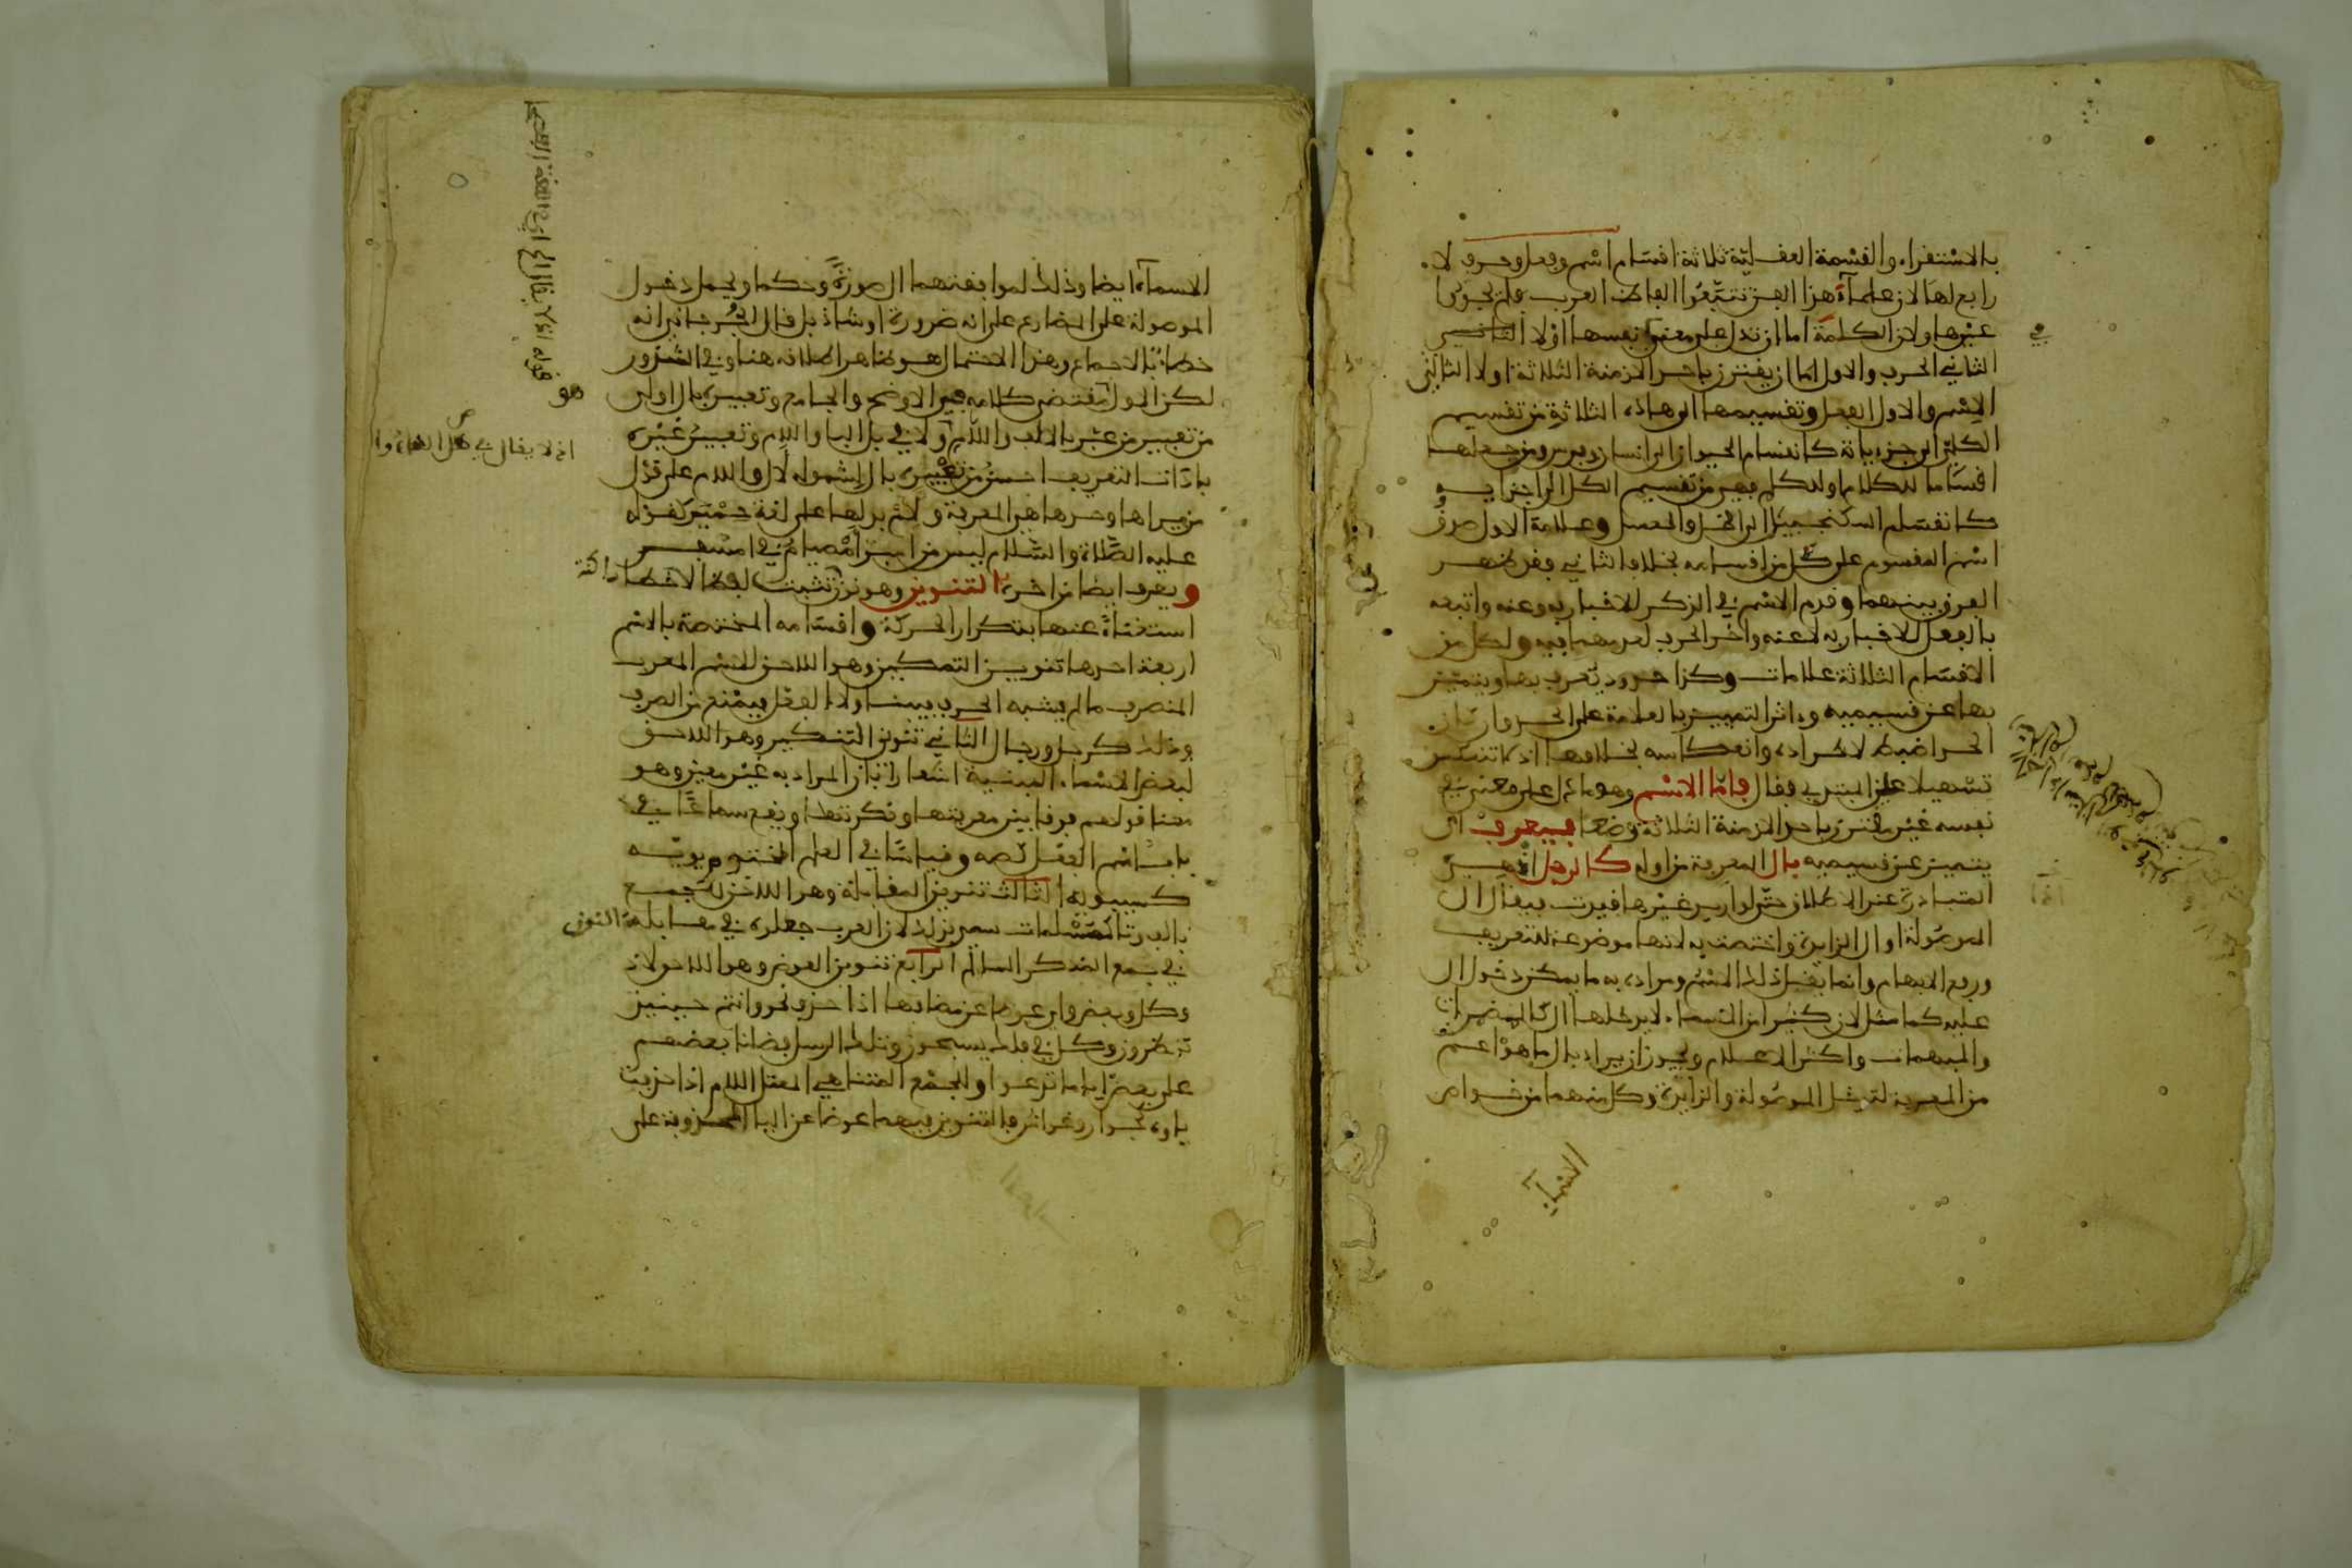 بالاستقراء والقسمة العقلية ثلاثة اقسام اسم وفعل وحرف لا
رابع لها لان علماء هذا الفن تتبعوا الفاظ العرب فلم يجدوا
غيرها ولان الكلمة اما ان تدل على معنى بنفسها اولا
الثاني الحرف والاول اما ان يقترن باحد الازمنة الثلاثة اولا الثاني
الاسم والاول الفعل وتقسيمها الى هاذه الثلاثة من تقسيم
الكلي الى جزءياته كانقسام الحيوان الى انسان وفرس ومن جعلها
اقساما للكلام اوللكلم فهو من تقسيم الكل الى اجزايه
كانقسام السكنجبيل الى الخل والعسل وعلامة الاول صدق
اسم المقسوم على كل من اقسامه بخلاف الثاني فقد ظهر
الفرق بينهما وقدم الاسم في الذكر للاخبار به وعنه واتبعه
بالفعل للاخبار به لا عنه واخر الحرف لعدمهما فيه ولكل من
الاقسام الثلاثة علامات وكذا حدود يعرف بها ويتميز
بها عن قسيميه وءاثر التمييز بالعلامة على الحد وان كان
الحد اضبط لاطراده وانعكاسه بخلافها اذ لا تنعكس
تسهيلا على المبتدي فقال فاما الاسم وهو ما دل على معنى في
نفسه غير مقترن باحد الازمنة الثلاثة وضعا فيعرف اي
يتميز عن قسيميه بال المعرفة من اوله كالرجل اذ هي
المتبادرة عند الاطلاق حتى لو اريد غيرها قيدت فيقال ال
الموصولة او ال الزايدة واختصت به لانها موضوعة للتعريف
ورفع الابهام وانما يقبل ذلك الاسم ومراده به ما يمكن دخول ال
عليه كما مثل لان كثيرا من الاسماء لا يدخلها ال كالمضمرات
والمبهمات واكثر الاعلام ويجوز ان يراد بال ما هو اعم
من المعرفة لتدخل الموصولة والزايدة وكل منهما من خواص
الاسماء
الاسماء ايضا وذلك لموافقتهما ال صورة وحكما ويحمل دخول
الموصولة على المضارع على انه ضرورة او شاذ بل قال الجرجاني انه
خطا بالاجماع وهذا الاحتمال هو ظاهر اطلاقه هنا وفي الشذور
لكن الاول مقتضى كلامه في الاوضح والجامع وتعبيره بال اولى
من تعبير من عبر بالالف واللام اذ لا يقال في بل الباء واللام وتعبير غيره
باداة التعريف احسن من تعبيره بال لشموله لال واللام على قول
من يراها وحدها هي المعرفة ولام بدلها على لغة حمير كقوله
عليه الصلاة والسلام ليس من امبر امصيام في امسفر
ويعرف ايضا من اخره بالتنوين وهو نون تثبت لفظا لا خطا
استغناء عنها بتكرار الحركة واقسامه المختصة بالاسم
اربعة احدها تنوين التمكين وهو اللاحق للاسم المعرب
المنصرف ما لم يشبه الحرف فيبنى ولا الفعل فيمنع من الصرف
وذلك كرجل ورجال الثاني تنوين التنكير وهو اللاحق
لبعض الاسماء المبنية اشعارا بان المراد به غير معين وهو
معنا قولهم فرقا بين معرفتها ونكرتها ويقع سماعا في
باب اسم الفعل كصه وقياسا في العلم المختوم بويه
كسيبويه الثالث تنوين المقابلة وهو اللاحق لجمع
بالف وتا كمسلمات سمي بذلك لان العرب جعلوه في مقابلة النون
في جمع المذكر السالم الرابع تنوين العوض وهو اللاحق لاذ
وكل وبعض واي عوضا عن مضافها اذا حذف نحو وانتم حينيذ
تنظرون وكل في فلك يسبحون وتلك الرسل فضلنا بعضهم
على بعض ايا ما تدعوا وللجمع المتناهي المعتل اللام اذا حذفت
ياوه نحو جوار وغواش فالتنوين فيهما عوضا عن اليا المحذوفة على